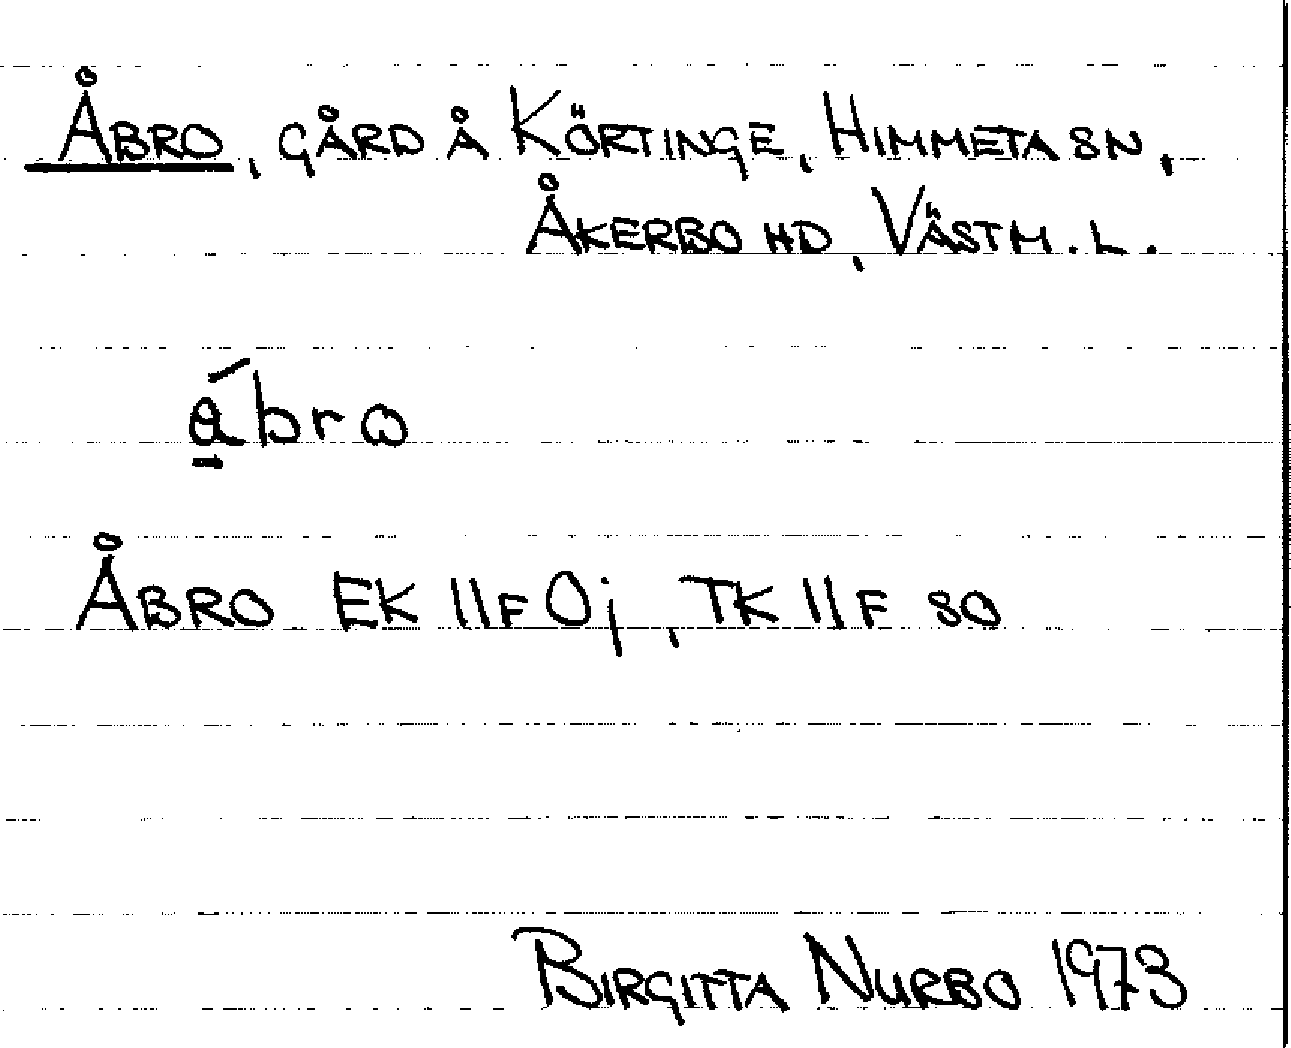 ÅBRO, GÅRD Å KÖRTINGE, HIMMETA SN,
ÅKERBO HD, VÄSTM. L.
ÅBRO EK 11F 0j, TK 11F SO
BIRGITTA NURBO 1973